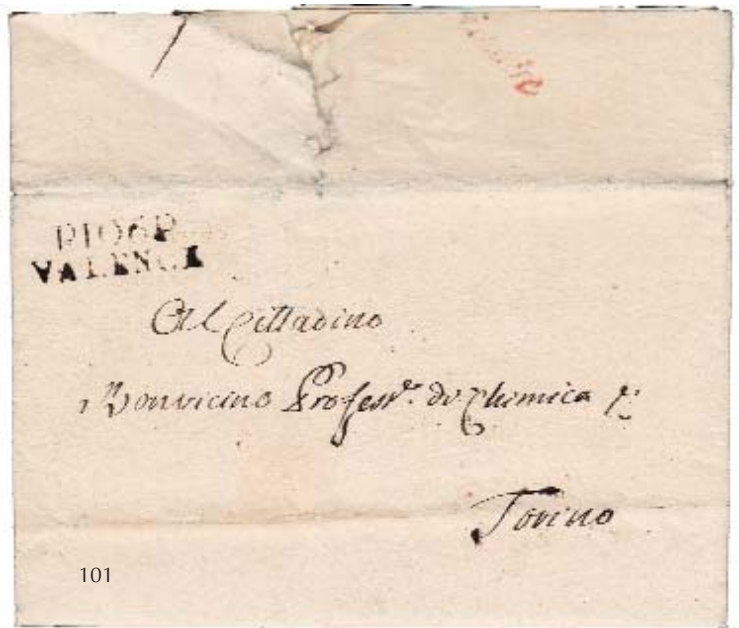 P106P
VALENCE
Al Cittadino
Bonvicino Profess.e di Chimica &
Torino
101